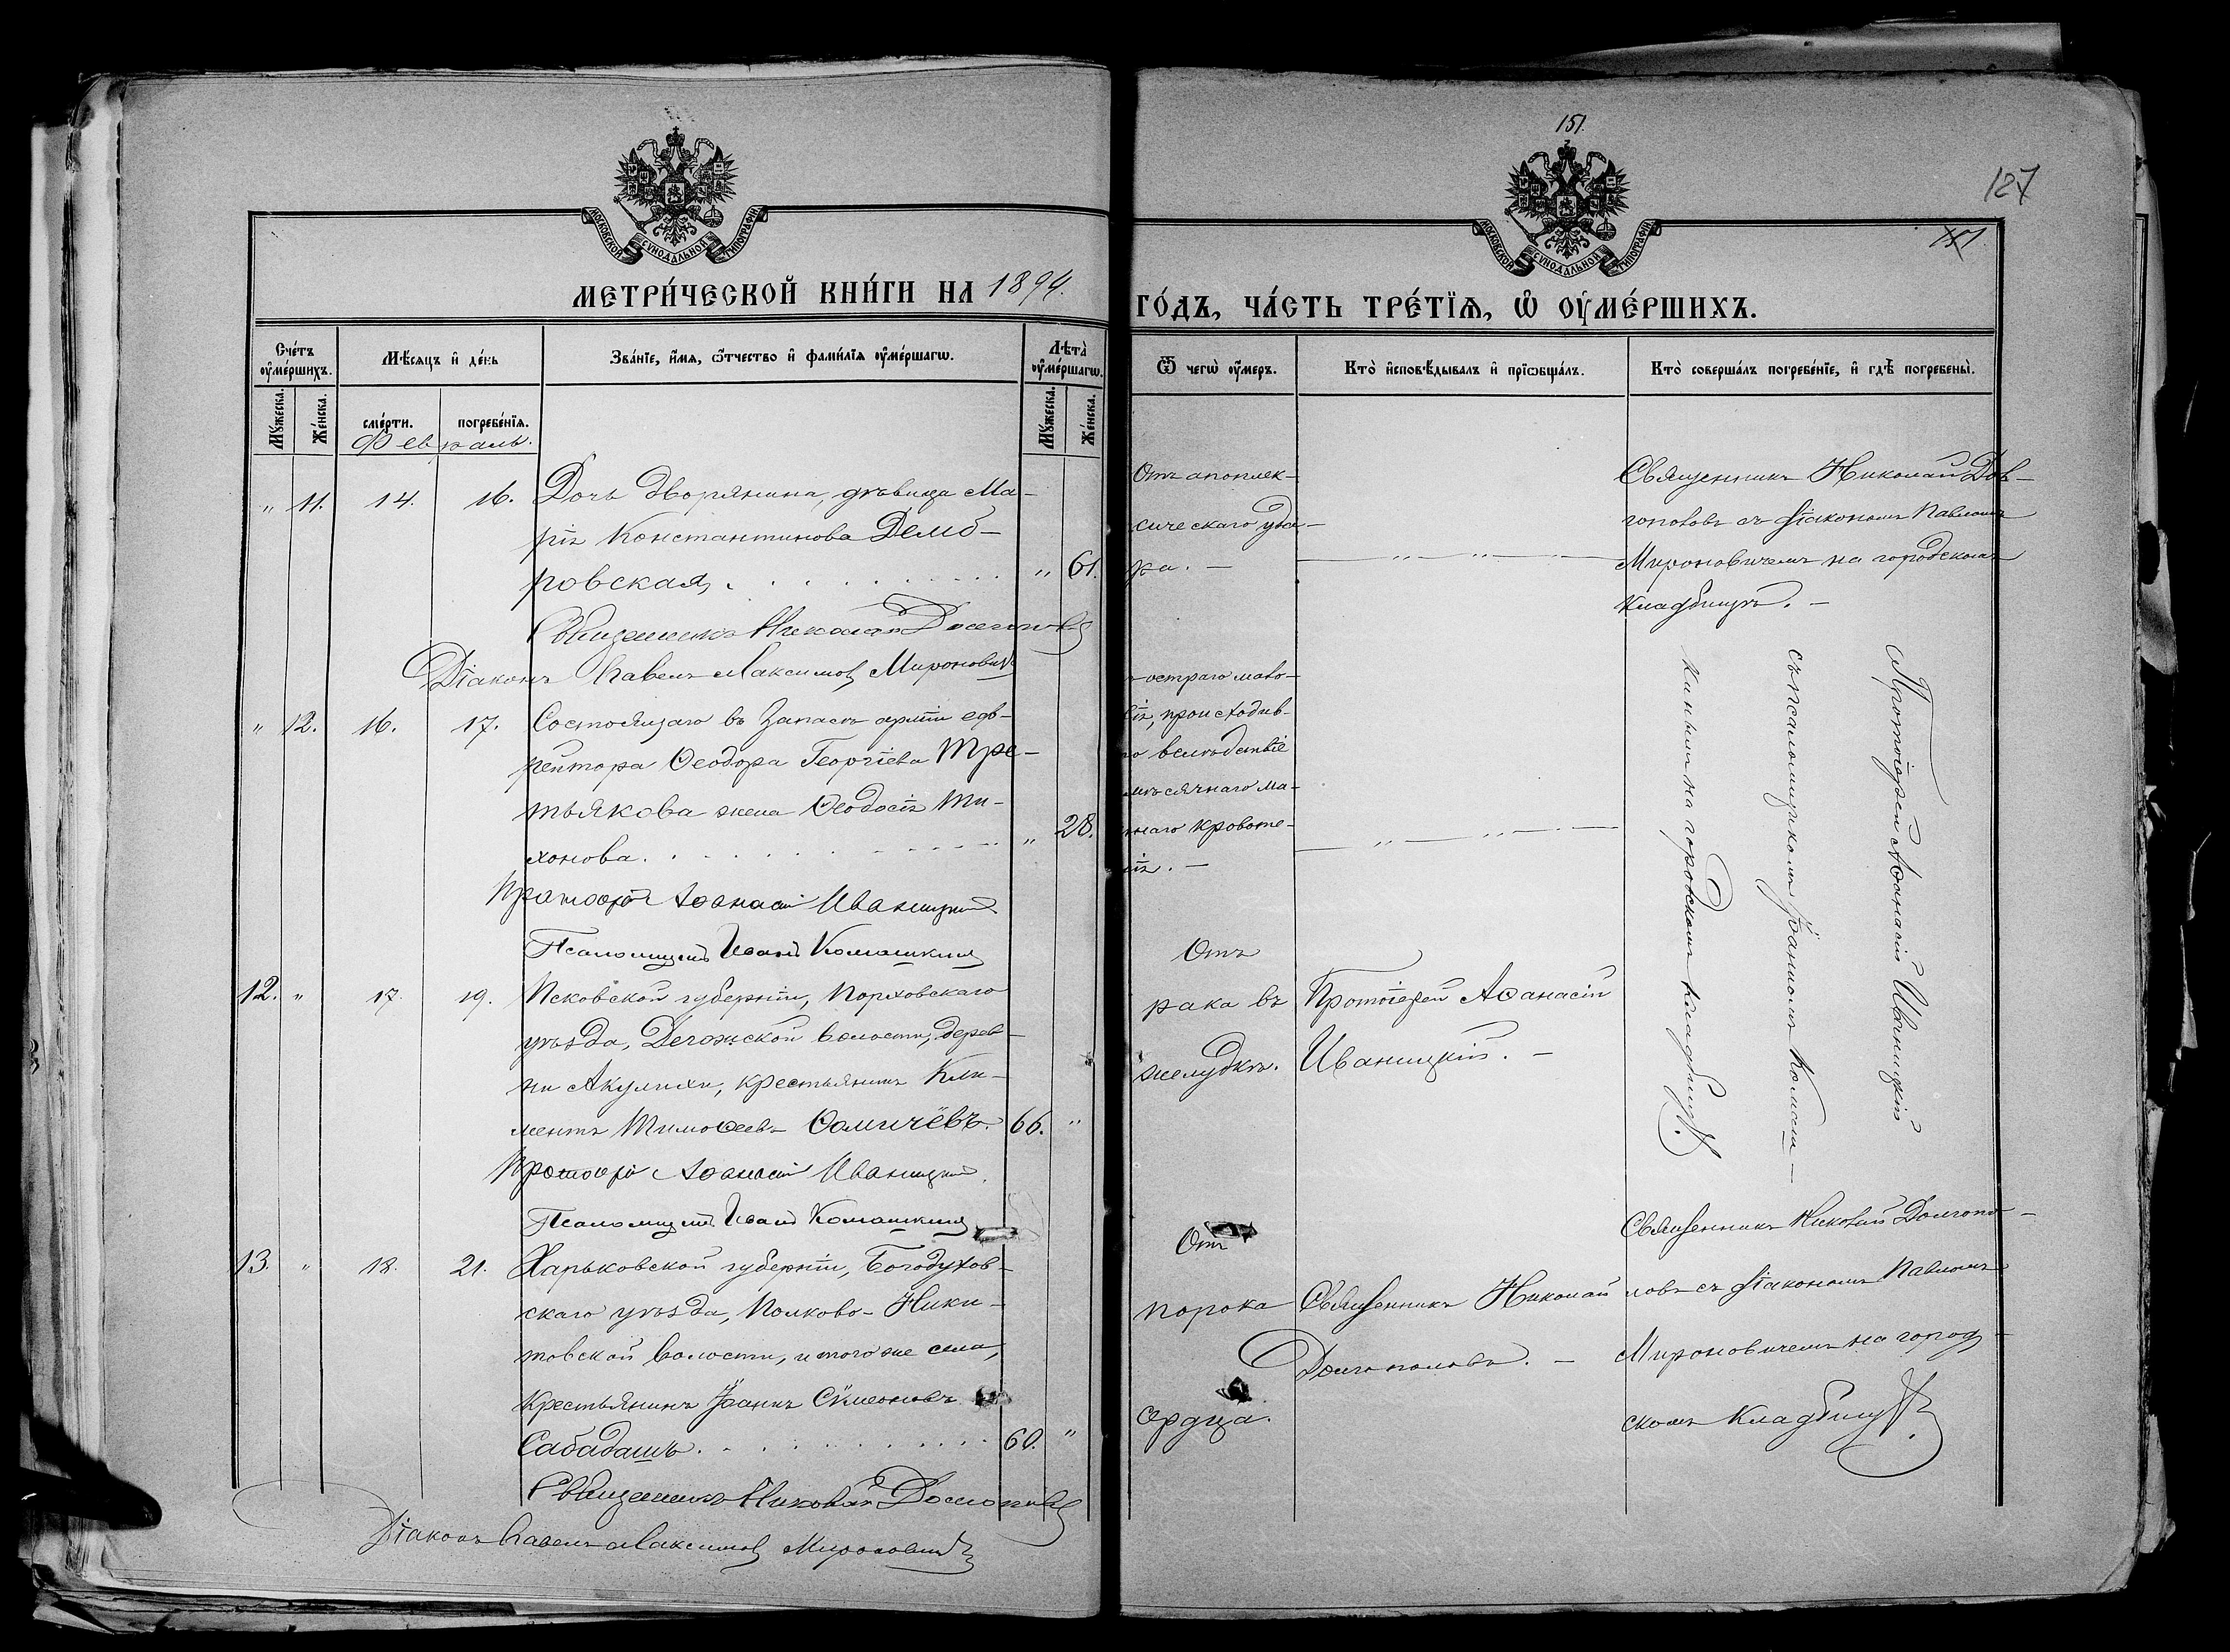 151.
127
151
МОСКОВСКОЙ СУНОДАЛЬНОЙ ТИПОГРАФІИ
МОСКОВСКОЙ СУНОДАЛЬНОЙ ТИПОГРАФІИ
МЕТРИ́ЧЕСКОЙ КНИ́ГИ НА 1894.
ГО́ДЪ, ЧА́СТЬ ТРЕ́ТЇѦ, Ѡ҆ ОУ҆МЕ́РШИХЪ.
Сче́тъ оу҆ме́ршихъ.
Мѣ́сѧцъ и҆ де́нь
Зва́нїе, и҆́мѧ, ѻ҆́тчество и҆ фами́лїѧ оу҆ме́ршагѡ.
Лѣта̀ оу҆ме́ршагѡ.
Ѿ чегѡ̀ оу҆́меръ.
Кто̀ и҆сповѣ́дывалъ и҆ прїѡбща́лъ.
Кто̀ соверша́лъ погребе́нїе, и҆ гдѣ̀ погребены̀.
Му́жеска.
Же́нска.
сме́рти.
погребе́нїѧ.
Му́жеска.
Же́нска.
Февраль.
" 11. 14. 16. Дочь дворянина, дѣвица Ма-
рія Константинова Демб-
ровская, . . . . . . . . " 61.
Священникъ Николай Долгополовъ
Діаконъ Павелъ Максимовъ Мироновичъ
Отъ апоплек-
сическаго уда-
ра. —
Священникъ Николай Дов-
гополовъ съ діакономъ Павломъ
Мироновичемъ на городскомъ
кладбищѣ. —
" 12. 16. 17. Состоящаго въ запасѣ арміи еф-
рейтора Ѳеодора Георгіева Тре-
тьякова жена Ѳеодосія Ти-
хонова. . . . . . . . . " 28.
Протоіерей Аѳанасій Иваницкій
Псаломщикъ Иванъ Комашкинъ
остраго мало-
вія, происходив-
го вслѣдствіе
мѣсячнаго ма-
чнаго кровоте-
нія. —
Протоіерей Аѳанасій Иваницкій
съ псаломщикомъ Іоанномъ Комаш-
кинымъ на городскомъ кладбищѣ.
12. " 17. 19. Псковской губерніи, Порховскаго
уѣзда, Дегожской волости, дерев-
ни Акулихи, крестьянинъ Кли-
ментъ Тимоѳеевъ Ѳомичёвъ. 66. "
Протоіерей Аѳанасій Иваницкій.
Псаломщикъ Иванъ Комашкинъ
Отъ
рака въ
желудкѣ.
Протоіерей Аѳанасій
Иваницкій. —
13. " 18. 21. Харьковской губерніи, Богодухов-
скаго уѣзда, Полково-Ники-
товской волости, и того же села,
крестьянинъ Іоаннъ Сѵмеоновъ
Сабадашъ. . . . . . . . 60. "
Священникъ Николай Долгополовъ
Діаконъ Павелъ Максимовъ Мироновичъ
Отъ
порока
сердца.
Священникъ Николай
Долгополовъ. —
Священникъ Николай Долгопо-
ловъ съ діакономъ Павломъ
Мироновичемъ на город-
скомъ кладбищѣ.